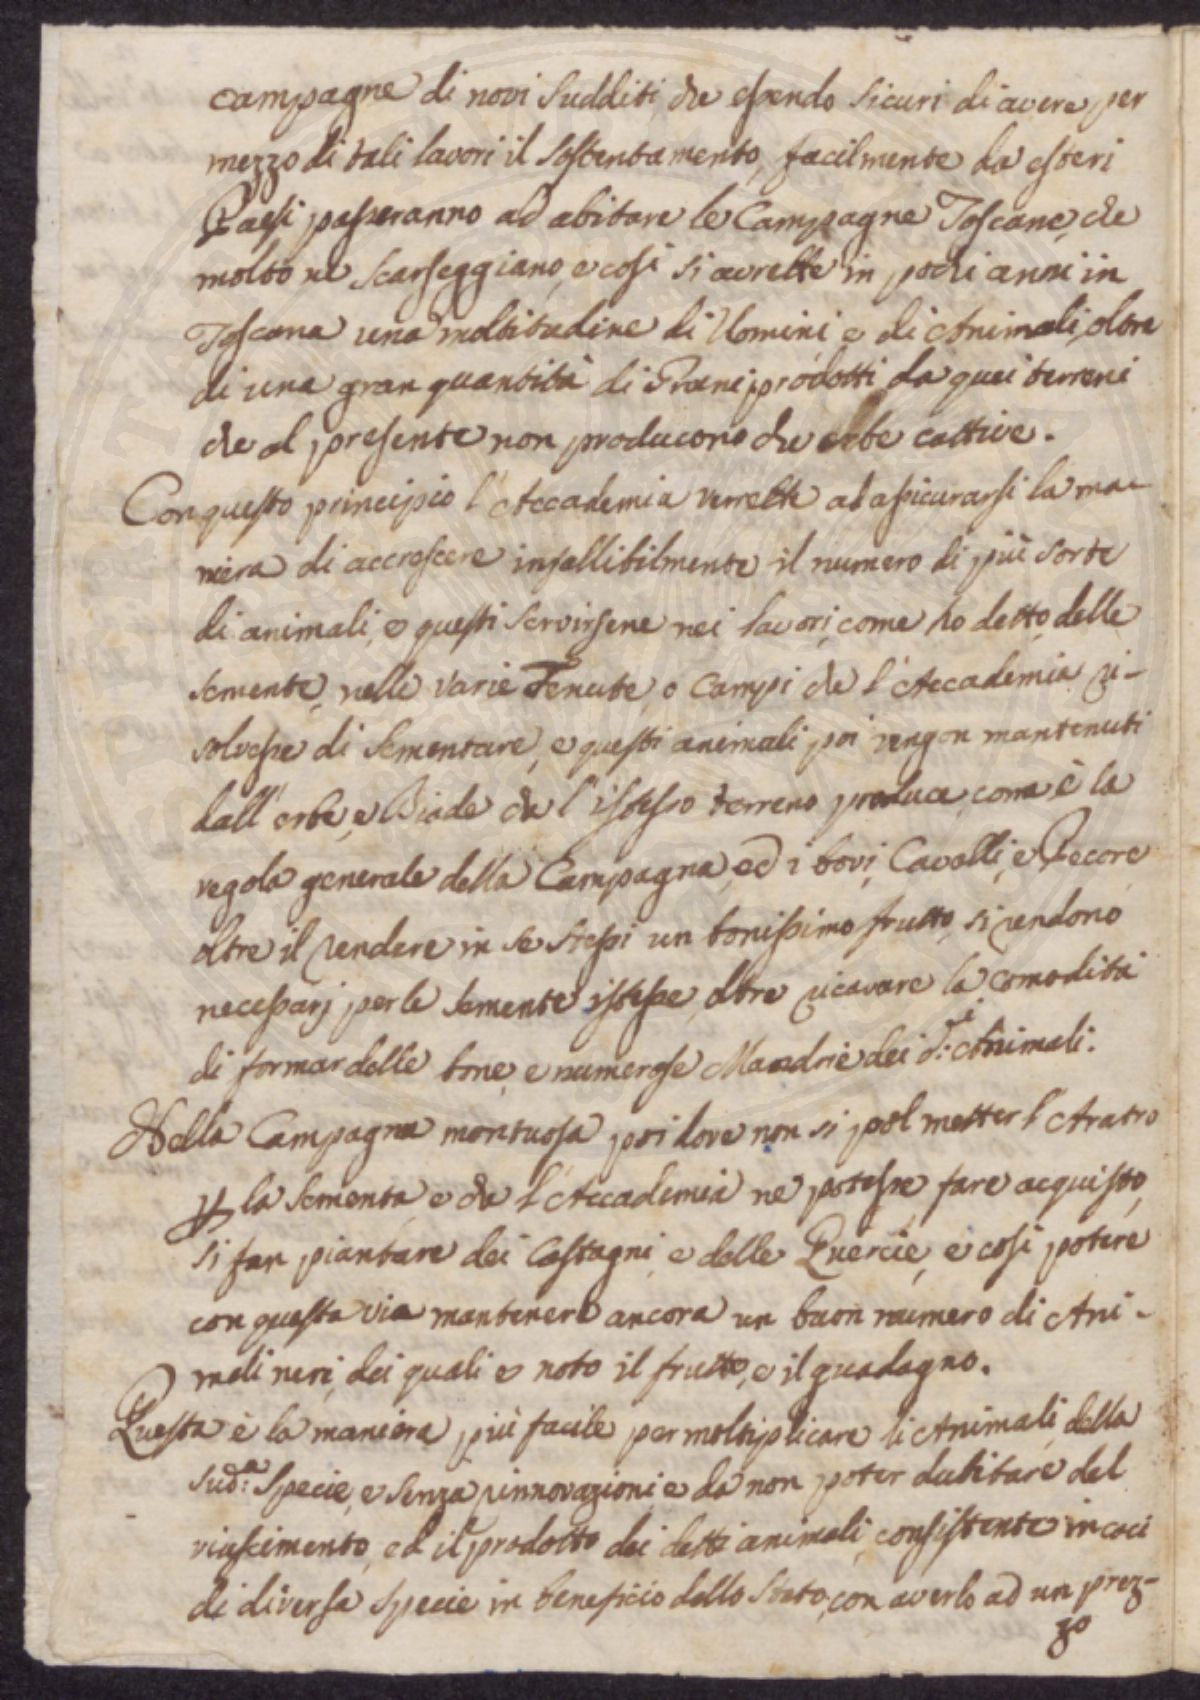 campagne di novi Sudditi, che essendo sicuri di avere per
mezzo di tali lavori il sostentamento, facilmente da esteri
Paesi passeranno ad abitare le Campagne Toscane, che
molto ne scarseggiano, e così si avrebbe in pochi anni in
Toscana una moltitudine di Uomini e di Animali, oltre
di una gran quantità di Grani prodotti da quei terreni
che al presente non producono che erbe cattive.
Con questo principio l'Accademia verrebbe ad assicurarsi la ma-
niera di accrescere infallibilmente il numero di più sorte
di animali, e questi servirsene nei lavori, come ho detto, delle
semente, nelle varie Tenute, o Campi che l'Accademia ri-
solvesse di sementare, e questi animali poi vengon mantenuti
dall'erbe, e Biade che l'istesso terreno produce, come è la
regola generale della Campagna, ed i bovi, Cavalli, e Pecore
oltre il rendere in se stessi un bonissimo frutto, si rendono
necessarj per le semente istesse, oltre ricavare la comodità
di formar delle bone, e numerose Mandrie dei d.ⁱ Animali.
Nella Campagna montuosa poi dove non si pol metter l'Aratro
p la sementa, e che l'Accademia ne potesse fare acquisto,
si fan piantare dei Castagni, e delle Quercie, e così potere
con questa via mantenere ancora un buon numero di Ani-
mali neri, dei quali è noto il frutto, e il guadagno.
Questa è la maniera più facile per moltiplicare li Animali, della
sud.ᵃ Specie, e senza rinnovazioni, e da non poter dubitare del
riuscimento, ed il prodotto dei detti animali, consistente in caci
di diversa specie in beneficio dello Stato, con averlo ad un prez-
zo